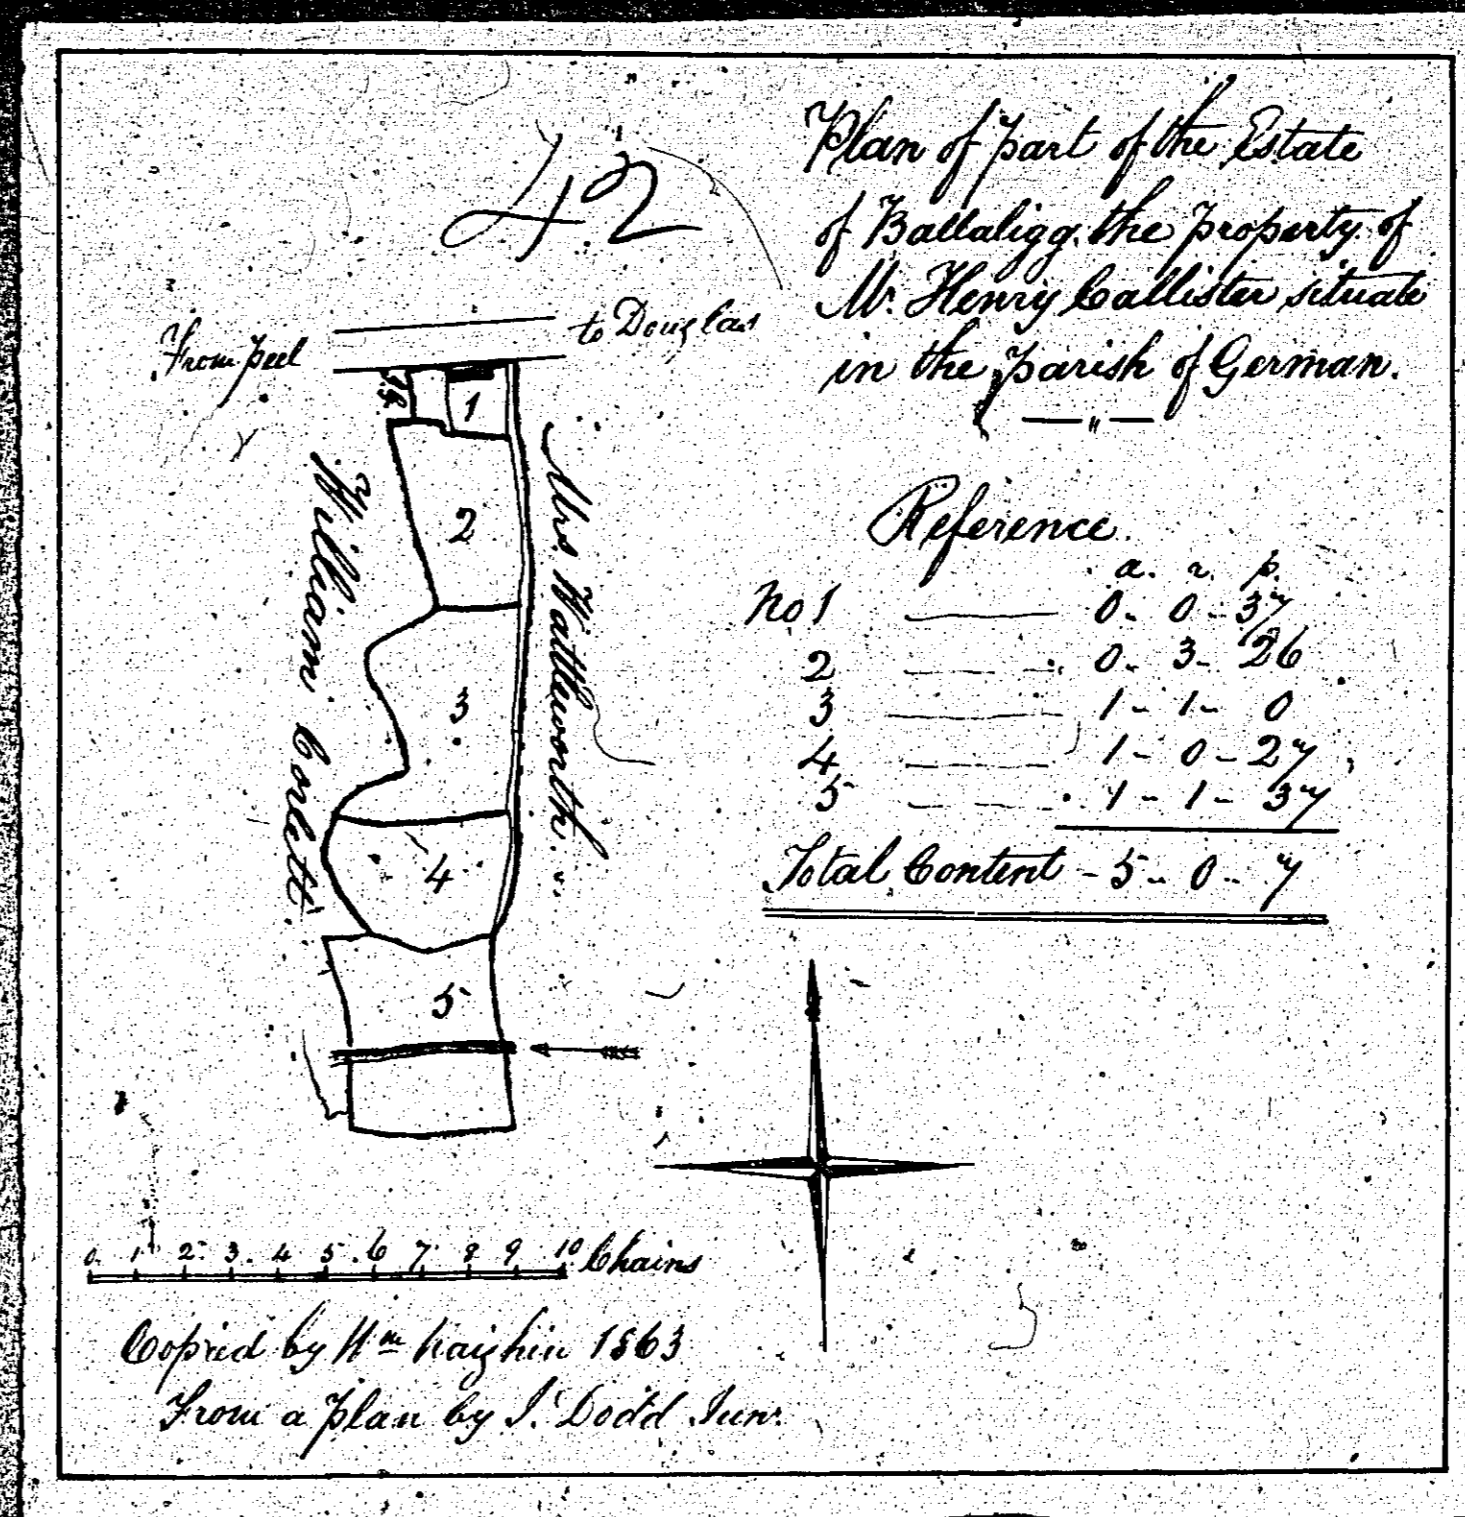 42
Plan of part of the Estate
of Ballaligg the property of
Mr. Henry Callister situate
in the parish of German.
From peel
to Douglas
1
2
3
4
5
William Corlett
Mrs. Watterworth
Reference
a. r. p.
No 1 0 - 0 - 37
2 0 - 3 - 26
3 1 - 1 - 0
4 1 - 0 - 27
5 1 - 1 - 37
Total Content - 5 - 0 - 7
0 1 2 3 4 5 6 7 8 9 10 Chains
Copied by Wm Kaighin 1863
From a plan by J. Dodd Junr.